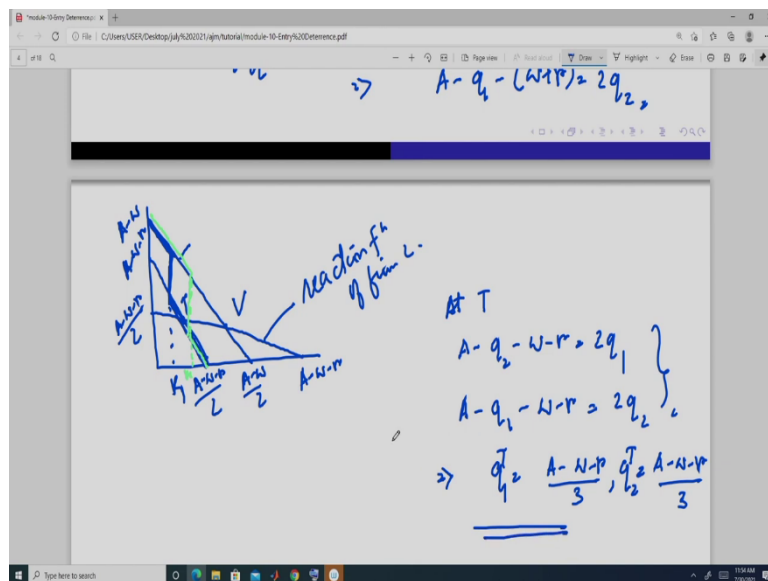 *module-10-Entry Deterrence.pdf
File | C:/Users/USER/Desktop/july%202021/ajm/tutorial/module-10-Entry%20Deterrence.pdf
4 of 18
Page view | Read aloud | Draw Highlight Erase
=> A-q₁-(w+r)=2q₂,
A-w
A-w-r
A-w-r/2
T
V
reaction fⁿ
of firm 2.
K₁ A-w-r/2 A-w/2 A-w-r
At T
A-q₂-w-r=2q₁
A-q₁-w-r=2q₂
=> q₁ᵀ= A-w-r/3, q₂ᵀ= A-w-r/3
Type here to search
11:54 AM
7/20/2021